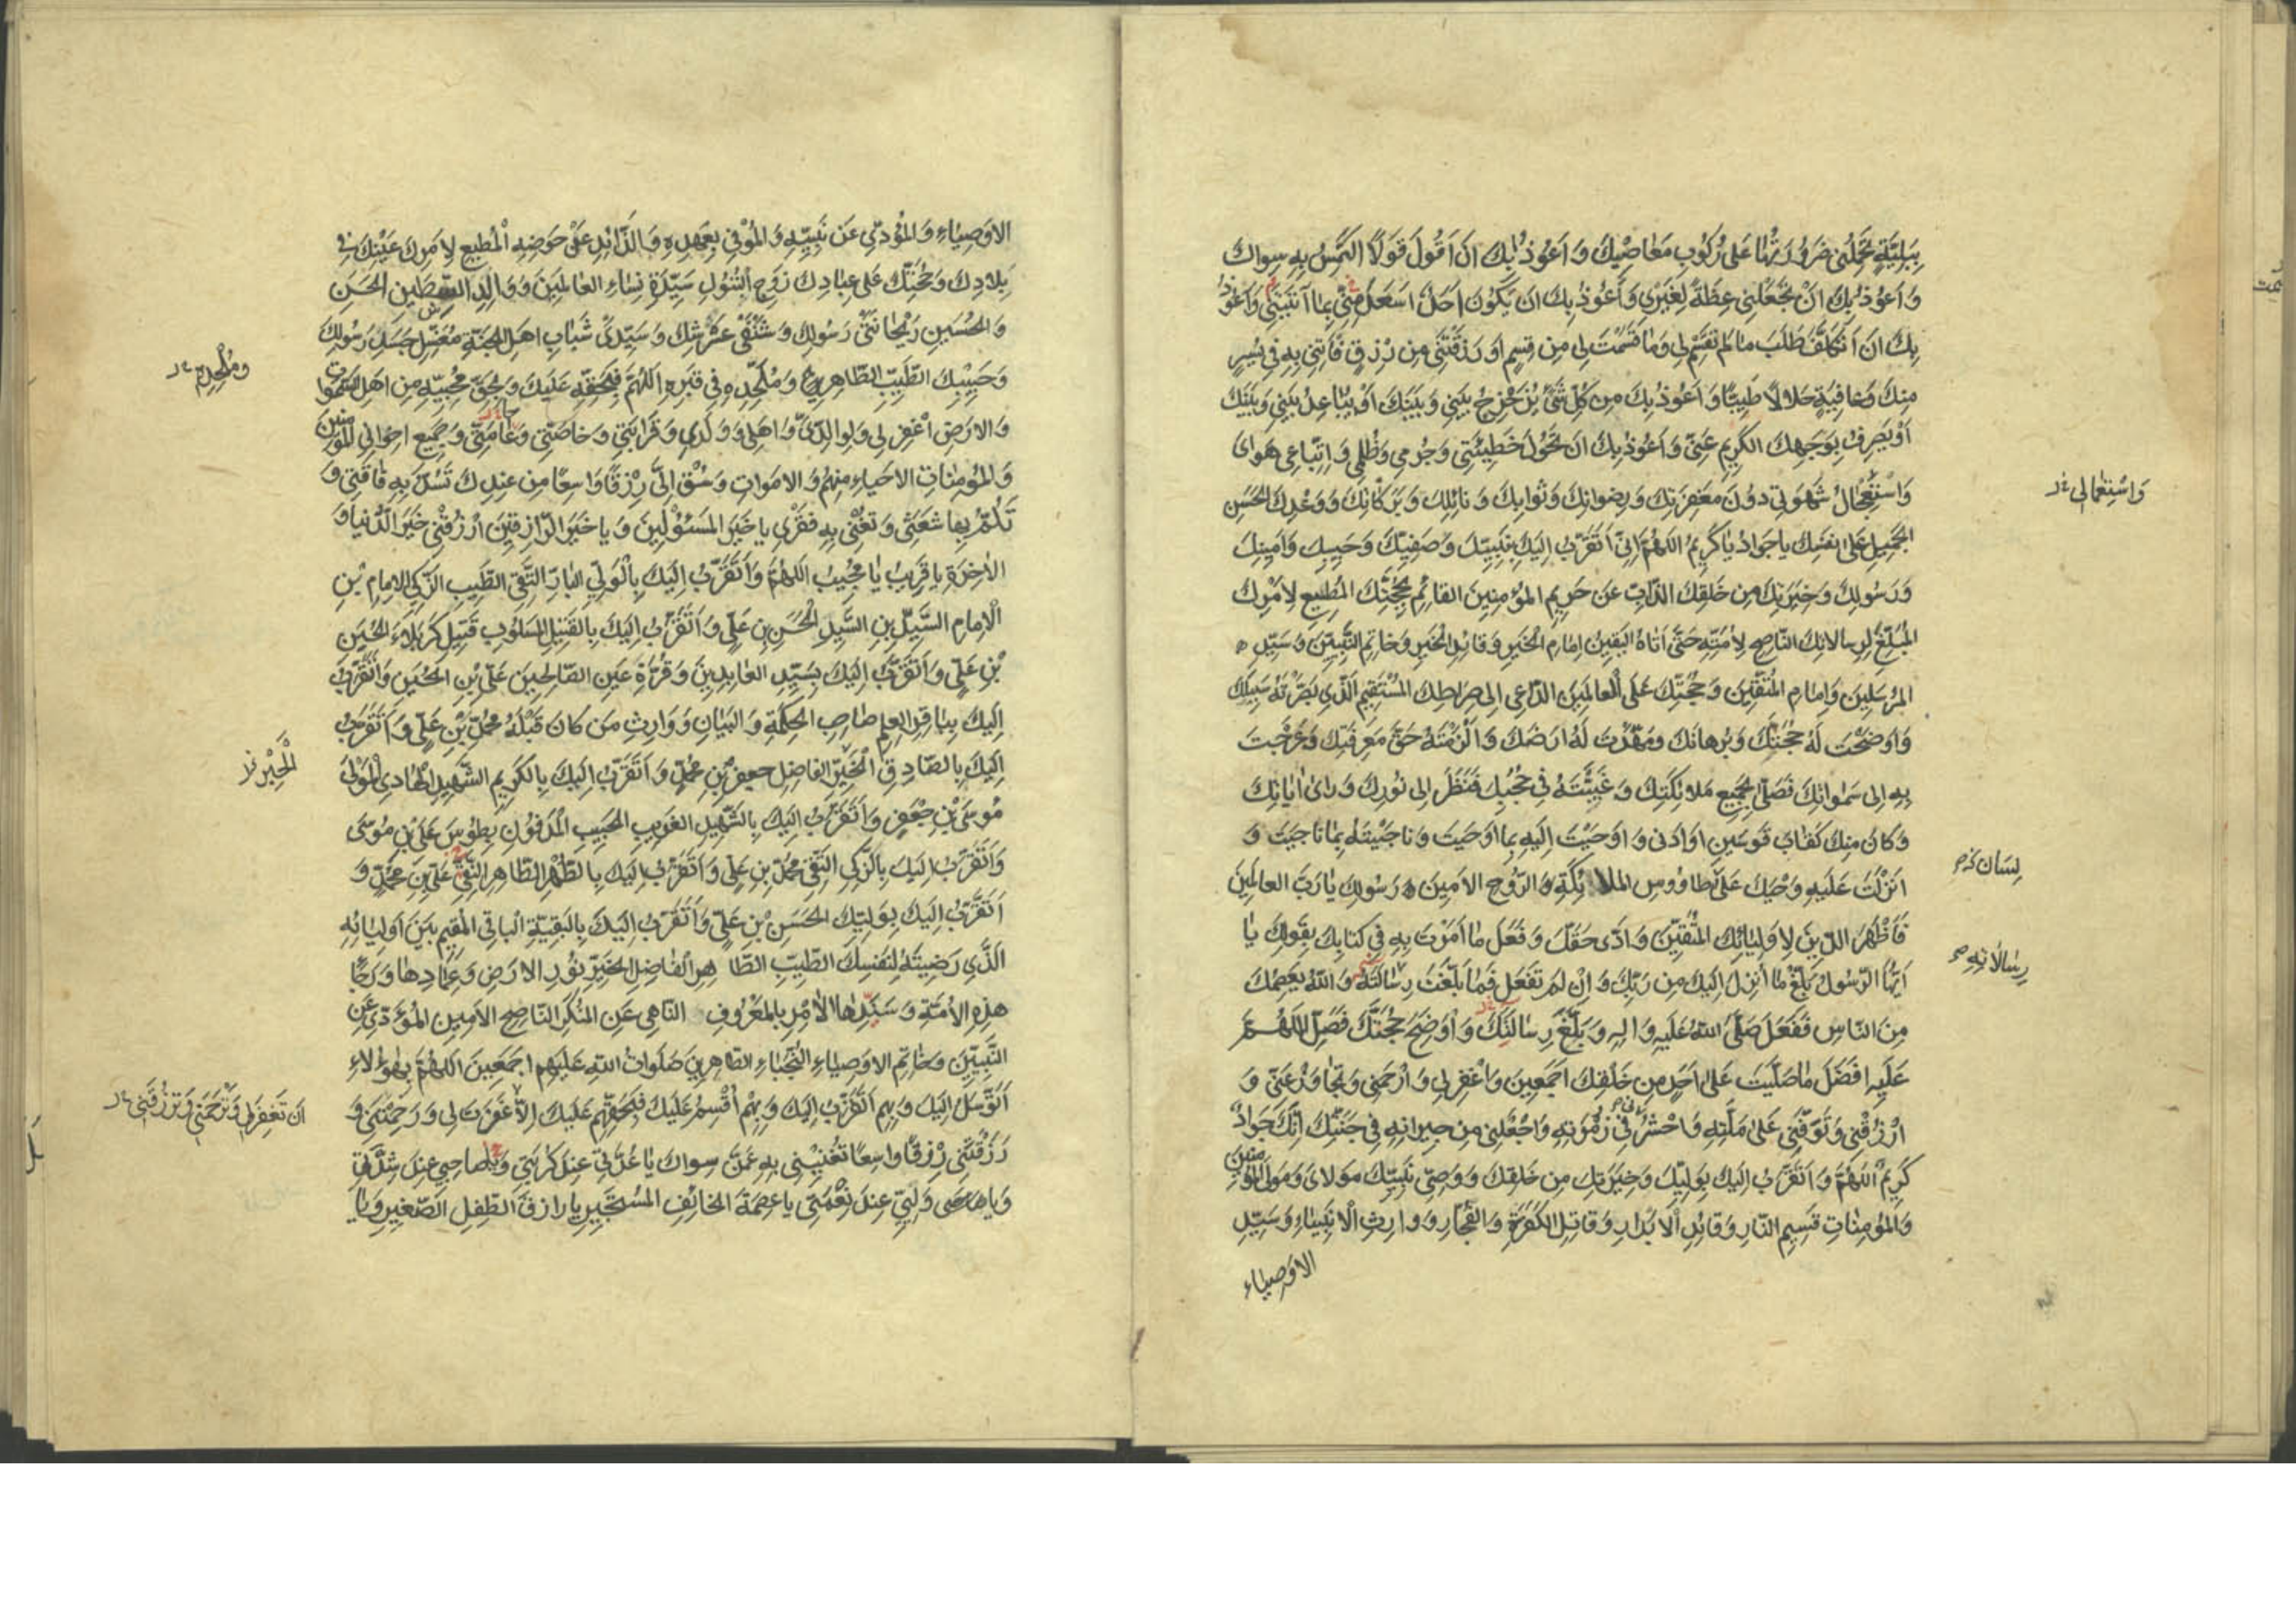 بِبَلِيَّةٍ تَحْمِلُنِي ضَرُورَتُهَا عَلَى رُكُوبِ مَعَاصِيكَ وَ اَعُوذُ بِكَ اَنْ اَقُولَ قَوْلًا اَلْتَمِسُ بِهِ سِوَاكَ
وَ اَعُوذُ بِكَ اَنْ تَجْعَلَنِي عِظَةً لِغَيْرِي وَ اَعُوذُ بِكَ اَنْ يَكُونَ اَحَدٌ اَسْعَدَ مِنِّي بِمَا آتَيْتَنِي وَ اَعُوذُ
بِكَ اَنْ اَتَكَلَّفَ طَلَبَ مَا لَمْ تَقْسِمْ لِي وَمَا قَسَمْتَ لِي مِنْ قِسْمٍ اَوْ رَزَقْتَنِي مِنْ رِزْقٍ فَأْتِنِي بِهِ فِي يُسْرٍ
مِنْكَ وَعَافِيَةٍ حَلَالًا طَيِّبًا وَ اَعُوذُ بِكَ مِنْ كُلِّ شَيْءٍ يُزَحْزِحُ بَيْنِي وَ بَيْنَكَ اَوْ يُبَاعِدُ بَيْنِي وَ بَيْنَكَ
اَوْ يَصْرِفُ بِوَجْهِكَ الْكَرِيمِ عَنِّي وَ اَعُوذُ بِكَ اَنْ تَحُولَ خَطِيئَتِي وَ جُرْمِي وَ ظُلْمِي وَ اتِّبَاعِي هَوَايَ
وَ اسْتِعْجَالُ شَهْوَتِي دُونَ مَغْفِرَتِكَ وَ رِضْوَانِكَ وَ ثَوَابِكَ وَ نَائِلِكَ وَ بَرَكَاتِكَ وَ وَعْدِكَ الْحَسَنِ
وَ اسْتِعْمَالِي خ‌د
الْجَمِيلِ عَلَى نَفْسِكَ يَا جَوَادُ يَا كَرِيمُ اَللّٰهُمَّ اِنِّي اَتَقَرَّبُ اِلَيْكَ بِنَبِيِّكَ وَ صَفِيِّكَ وَ حَبِيبِكَ وَ اَمِينِكَ
وَ رَسُولِكَ وَ خِيَرَتِكَ مِنْ خَلْقِكَ الذَّابِّ عَنْ حَرِيمِ الْمُؤْمِنِينَ الْقَائِمِ بِحُجَّتِكَ الْمُطِيعِ لِاَمْرِكَ
الْمُبَلِّغِ لِرِسَالَاتِكَ النَّاصِحِ لِاُمَّتِهِ حَتَّى اَتَاهُ الْيَقِينُ اِمَامِ الْخَيْرِ وَ قَائِدِ الْخَيْرِ وَ خَاتَمِ النَّبِيِّينَ وَ سَيِّدِ
الْمُرْسَلِينَ وَ اِمَامِ الْمُتَّقِينَ وَ حُجَّتِكَ عَلَى الْعَالَمِينَ الدَّاعِي اِلَى صِرَاطِكَ الْمُسْتَقِيمِ الَّذِي بَصَّرْتَهُ سَبِيلَكَ
وَ اَوْضَحْتَ لَهُ حُجَّتَكَ وَ بُرْهَانَكَ وَ مَهَّدْتَ لَهُ اَرْضَكَ وَ اَلْزَمْتَهُ حَقَّ مَعْرِفَتِكَ وَ عَرَجْتَ
بِهِ اِلَى سَمٰوَاتِكَ فَصَلَّى بِجَمِيعِ مَلَائِكَتِكَ وَ غَيَّبْتَهُ فِي حُجُبِكَ فَنَظَرَ اِلَى نُورِكَ وَ رَاٰى اٰيَاتِكَ
وَ كَانَ مِنْكَ كَقَابِ قَوْسَيْنِ اَوْ اَدْنَى وَ اَوْحَيْتَ اِلَيْهِ بِمَا اَوْحَيْتَ وَ نَاجَيْتَهُ بِمَا نَاجَيْتَ وَ
اَنْزَلْتَ عَلَيْهِ وَحْيَكَ عَلَى طَاوُوسِ الْمَلَائِكَةِ وَ الرُّوحِ الْاَمِينِ رَسُولِكَ يَا رَبَّ الْعَالَمِينَ
لِسَانِ
فَاَظْهَرَ الدِّينَ لِاَوْلِيَائِكَ الْمُتَّقِينَ وَ اَدَّى حَقَّكَ وَ فَعَلَ مَا اَمَرْتَ بِهِ فِي كِتَابِكَ بِقَوْلِكَ يَا
اَيُّهَا الرَّسُولُ بَلِّغْ مَا اُنْزِلَ اِلَيْكَ مِنْ رَبِّكَ وَ اِنْ لَمْ تَفْعَلْ فَمَا بَلَّغْتَ رِسَالَتَهُ وَ اللّٰهُ يَعْصِمُكَ
رِسَالَاتِهِ
مِنَ النَّاسِ فَفَعَلَ صَلَّى اللّٰهُ عَلَيْهِ وَ اٰلِهِ وَ بَلَّغَ رِسَالَتَكَ وَ اَوْضَحَ حُجَّتَكَ فَصَلِّ اللّٰهُمَّ
عَلَيْهِ اَفْضَلَ مَا صَلَّيْتَ عَلَى اَحَدٍ مِنْ خَلْقِكَ اَجْمَعِينَ وَ اغْفِرْ لِي وَ ارْحَمْنِي وَ تَجَاوَزْ عَنِّي وَ
ارْزُقْنِي وَ تَوَفَّنِي عَلَى مِلَّتِهِ وَ احْشُرْنِي فِي زُمْرَتِهِ وَ اجْعَلْنِي مِنْ جِيرَانِهِ فِي جَنَّتِكَ اِنَّكَ جَوَادٌ
كَرِيمٌ اَللّٰهُمَّ وَ اَتَقَرَّبُ اِلَيْكَ بِوَلِيِّكَ وَ خِيَرَتِكَ مِنْ خَلْقِكَ وَ وَصِيِّ نَبِيِّكَ مَوْلَايَ وَ مَوْلَى الْمُؤْمِنِينَ
وَ الْمُؤْمِنَاتِ قَسِيمِ النَّارِ وَ قَائِدِ الْاَبْرَارِ وَ قَاتِلِ الْكَفَرَةِ وَ الْفُجَّارِ وَ وَارِثِ الْاَنْبِيَاءِ وَ سَيِّدِ
الاوصياء
الْاَوْصِيَاءِ وَ الْمُؤَدِّي عَنْ نَبِيِّهِ وَ الْمُوْفِي بِعَهْدِهِ وَ الذَّائِدِ عَنْ حَوْضِهِ الْمُطِيعِ لِاَمْرِكَ عَيْنِكَ فِي
بِلَادِكَ وَ حُجَّتِكَ عَلَى عِبَادِكَ زَوْجِ الْبَتُولِ سَيِّدَةِ نِسَاءِ الْعَالَمِينَ وَ وَالِدِ السِّبْطَيْنِ الْحَسَنِ
وَ الْحُسَيْنِ رَيْحَانَتَيْ رَسُولِكَ وَ شَنْفَيْ عَرْشِكَ وَ سَيِّدَيْ شَبَابِ اَهْلِ الْجَنَّةِ مُغَسِّلِ جَسَدِ رَسُولِكَ
وَ حَبِيبِكَ الطَّيِّبِ الطَّاهِرِ وَ مُلْحِدِهِ فِي قَبْرِهِ اَللّٰهُمَّ فَبِحَقِّهِ عَلَيْكَ وَ بِحَقِّ مُحِبِّيهِ مِنْ اَهْلِ السَّمٰوَاتِ
وَ مُلْحِدِهِ خ‌د
وَ الْاَرْضِ اغْفِرْ لِي وَ لِوَالِدَيَّ وَ اَهْلِي وَ وَلَدِي وَ قَرَابَتِي وَ خَاصَّتِي وَ عَامَّتِي وَ جَمِيعِ اِخْوَانِيَ الْمُؤْمِنِينَ
وَ الْمُؤْمِنَاتِ الْاَحْيَاءِ مِنْهُمْ وَ الْاَمْوَاتِ وَ سُقْ اِلَيَّ رِزْقًا وَاسِعًا مِنْ عِنْدِكَ تَسُدُّ بِهِ فَاقَتِي وَ
تَلُمُّ بِهَا شَعَثِي وَ تُغْنِي بِهِ فَقْرِي يَا خَيْرَ الْمَسْئُولِينَ وَ يَا خَيْرَ الرَّازِقِينَ ارْزُقْنِي خَيْرَ الدُّنْيَا وَ
الْاٰخِرَةِ يَا قَرِيبُ يَا مُجِيبُ اَللّٰهُمَّ وَ اَتَقَرَّبُ اِلَيْكَ بِالْوَلِيِّ الْبَارِّ التَّقِيِّ الطَّيِّبِ الزَّكِيِّ الْاِمَامِ بْنِ
الْاِمَامِ السَّيِّدِ بْنِ السَّيِّدِ الْحَسَنِ بْنِ عَلِيٍّ وَ اَتَقَرَّبُ اِلَيْكَ بِالْقَتِيلِ الْمَسْلُوبِ قَتِيلِ كَرْبَلَاءَ الْحُسَيْنِ
بْنِ عَلِيٍّ وَ اَتَقَرَّبُ اِلَيْكَ بِسَيِّدِ الْعَابِدِينَ وَ قُرَّةِ عَيْنِ الصَّالِحِينَ عَلِيِّ بْنِ الْحُسَيْنِ وَ اَتَقَرَّبُ
اِلَيْكَ بِبَاقِرِ الْعِلْمِ صَاحِبِ الْحِكْمَةِ وَ الْبَيَانِ وَ وَارِثِ مَنْ كَانَ قَبْلَهُ مُحَمَّدِ بْنِ عَلِيٍّ وَ اَتَقَرَّبُ
اِلَيْكَ بِالصَّادِقِ الْخَيِّرِ الْفَاضِلِ جَعْفَرِ بْنِ مُحَمَّدٍ وَ اَتَقَرَّبُ اِلَيْكَ بِالْكَرِيمِ الشَّهِيدِ الْهَادِي الْمَوْلَى
الْحِبْرِ
مُوسَى بْنِ جَعْفَرٍ وَ اَتَقَرَّبُ اِلَيْكَ بِالشَّهِيدِ الْغَرِيبِ الْحَبِيبِ الْمَدْفُونِ بِطُوسَ عَلِيِّ بْنِ مُوسَى
وَ اَتَقَرَّبُ اِلَيْكَ بِالزَّكِيِّ التَّقِيِّ مُحَمَّدِ بْنِ عَلِيٍّ وَ اَتَقَرَّبُ اِلَيْكَ بِالطُّهْرِ الطَّاهِرِ النَّقِيِّ عَلِيِّ بْنِ مُحَمَّدٍ وَ
اَتَقَرَّبُ اِلَيْكَ بِوَلِيِّكَ الْحَسَنِ بْنِ عَلِيٍّ وَ اَتَقَرَّبُ اِلَيْكَ بِالْبَقِيَّةِ الْبَاقِي الْمُقِيمِ بَيْنَ اَوْلِيَائِهِ
الَّذِي رَضِيتَهُ لِنَفْسِكَ الطَّيِّبِ الطَّاهِرِ الْفَاضِلِ الْخَيِّرِ نُورِ الْاَرْضِ وَ عِمَادِهَا وَ رَجَا
هٰذِهِ الْاُمَّةِ وَ سَيِّدِهَا الْاٰمِرِ بِالْمَعْرُوفِ النَّاهِي عَنِ الْمُنْكَرِ النَّاصِحِ الْاَمِينِ الْمُؤَدِّي عَنِ
النَّبِيِّينَ وَ خَاتَمِ الْاَوْصِيَاءِ النُّجَبَاءِ الطَّاهِرِينَ صَلَوَاتُ اللّٰهِ عَلَيْهِمْ اَجْمَعِينَ اَللّٰهُمَّ بِهٰؤُلَاءِ
اَتَوَسَّلُ اِلَيْكَ وَ بِهِمْ اَتَقَرَّبُ اِلَيْكَ وَ بِهِمْ اُقْسِمُ عَلَيْكَ فَبِحَقِّهِمْ عَلَيْكَ اِلَّا غَفَرْتَ لِي وَ رَحِمْتَنِي وَ
اَنْ تَغْفِرَ لِي وَ تَرْحَمَنِي وَ تَرْزُقَنِي خ‌د
رَزَقْتَنِي رِزْقًا وَاسِعًا تُغْنِينِي بِهِ عَمَّنْ سِوَاكَ يَا عُدَّتِي عِنْدَ كُرْبَتِي وَ يَا صَاحِبِي عِنْدَ شِدَّتِي
وَ يَا وَلِيِّي عِنْدَ نِعْمَتِي يَا عِصْمَةَ الْخَائِفِ الْمُسْتَجِيرِ يَا رَازِقَ الطِّفْلِ الصَّغِيرِ وَ يَا